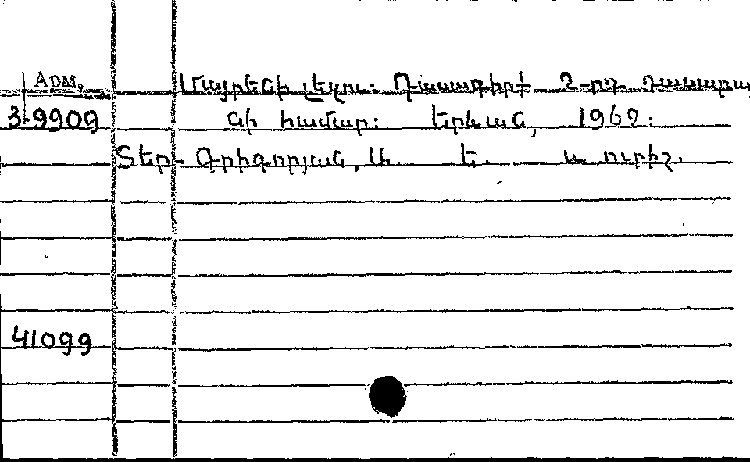 Arm. Մայրենի լեզու: Դասագիրք 2-րդ դասարա
3-9909 նի համար: Երևան, 1969.
Տեր-Գրիգորյան, Ա. և ուրիշ.
41099